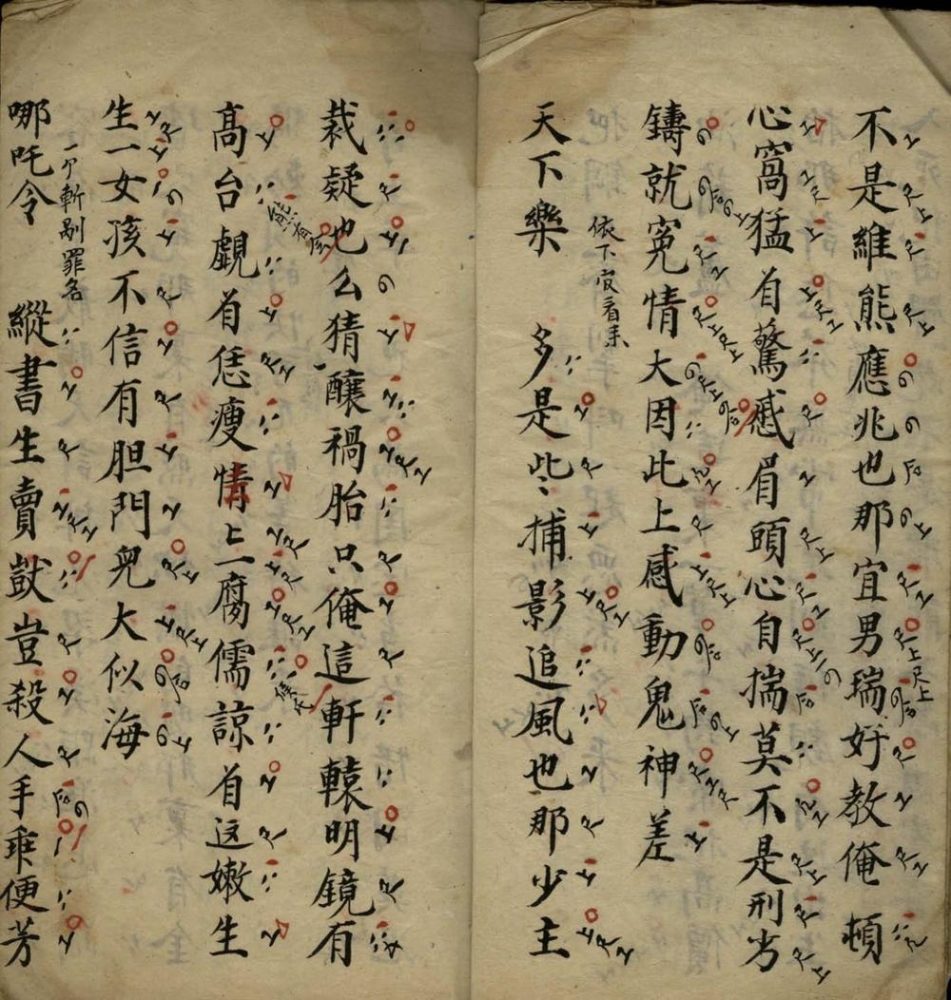 不是維熊應兆也那宜男瑞好教俺 頓
心窩猛着驚慼眉頭心自揣莫不是刑书
鑄就冤情大因此上感動鬼神差
依下官看来
天下樂 多是些捕影追風也那少主
裁疑也么猜釀禍胎只俺這軒轅明鏡有
高台覷着恁瘦情匕一腐儒諒着这嫩生
生一女孩不信有胆門兒大似海
一个斬剮罪名
哪吒令 縱書生賣獃豈殺人手乖便芳